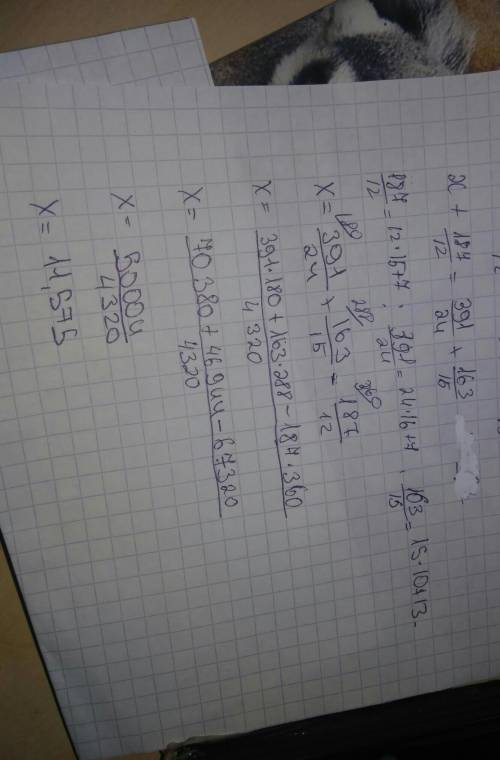 x + 187/12 = 391/24 + 163/15
187/12 = 12·15+7, 391/24 = 24·16+7, 163/15 = 15·10+13.
x = 391/24 + 163/15 = 187/12
180 288 360
x = 391·180+163·288-187·360 / 4320
x = 70380+46944-67320 / 4320
x = 50004 / 4320
x = 11,575